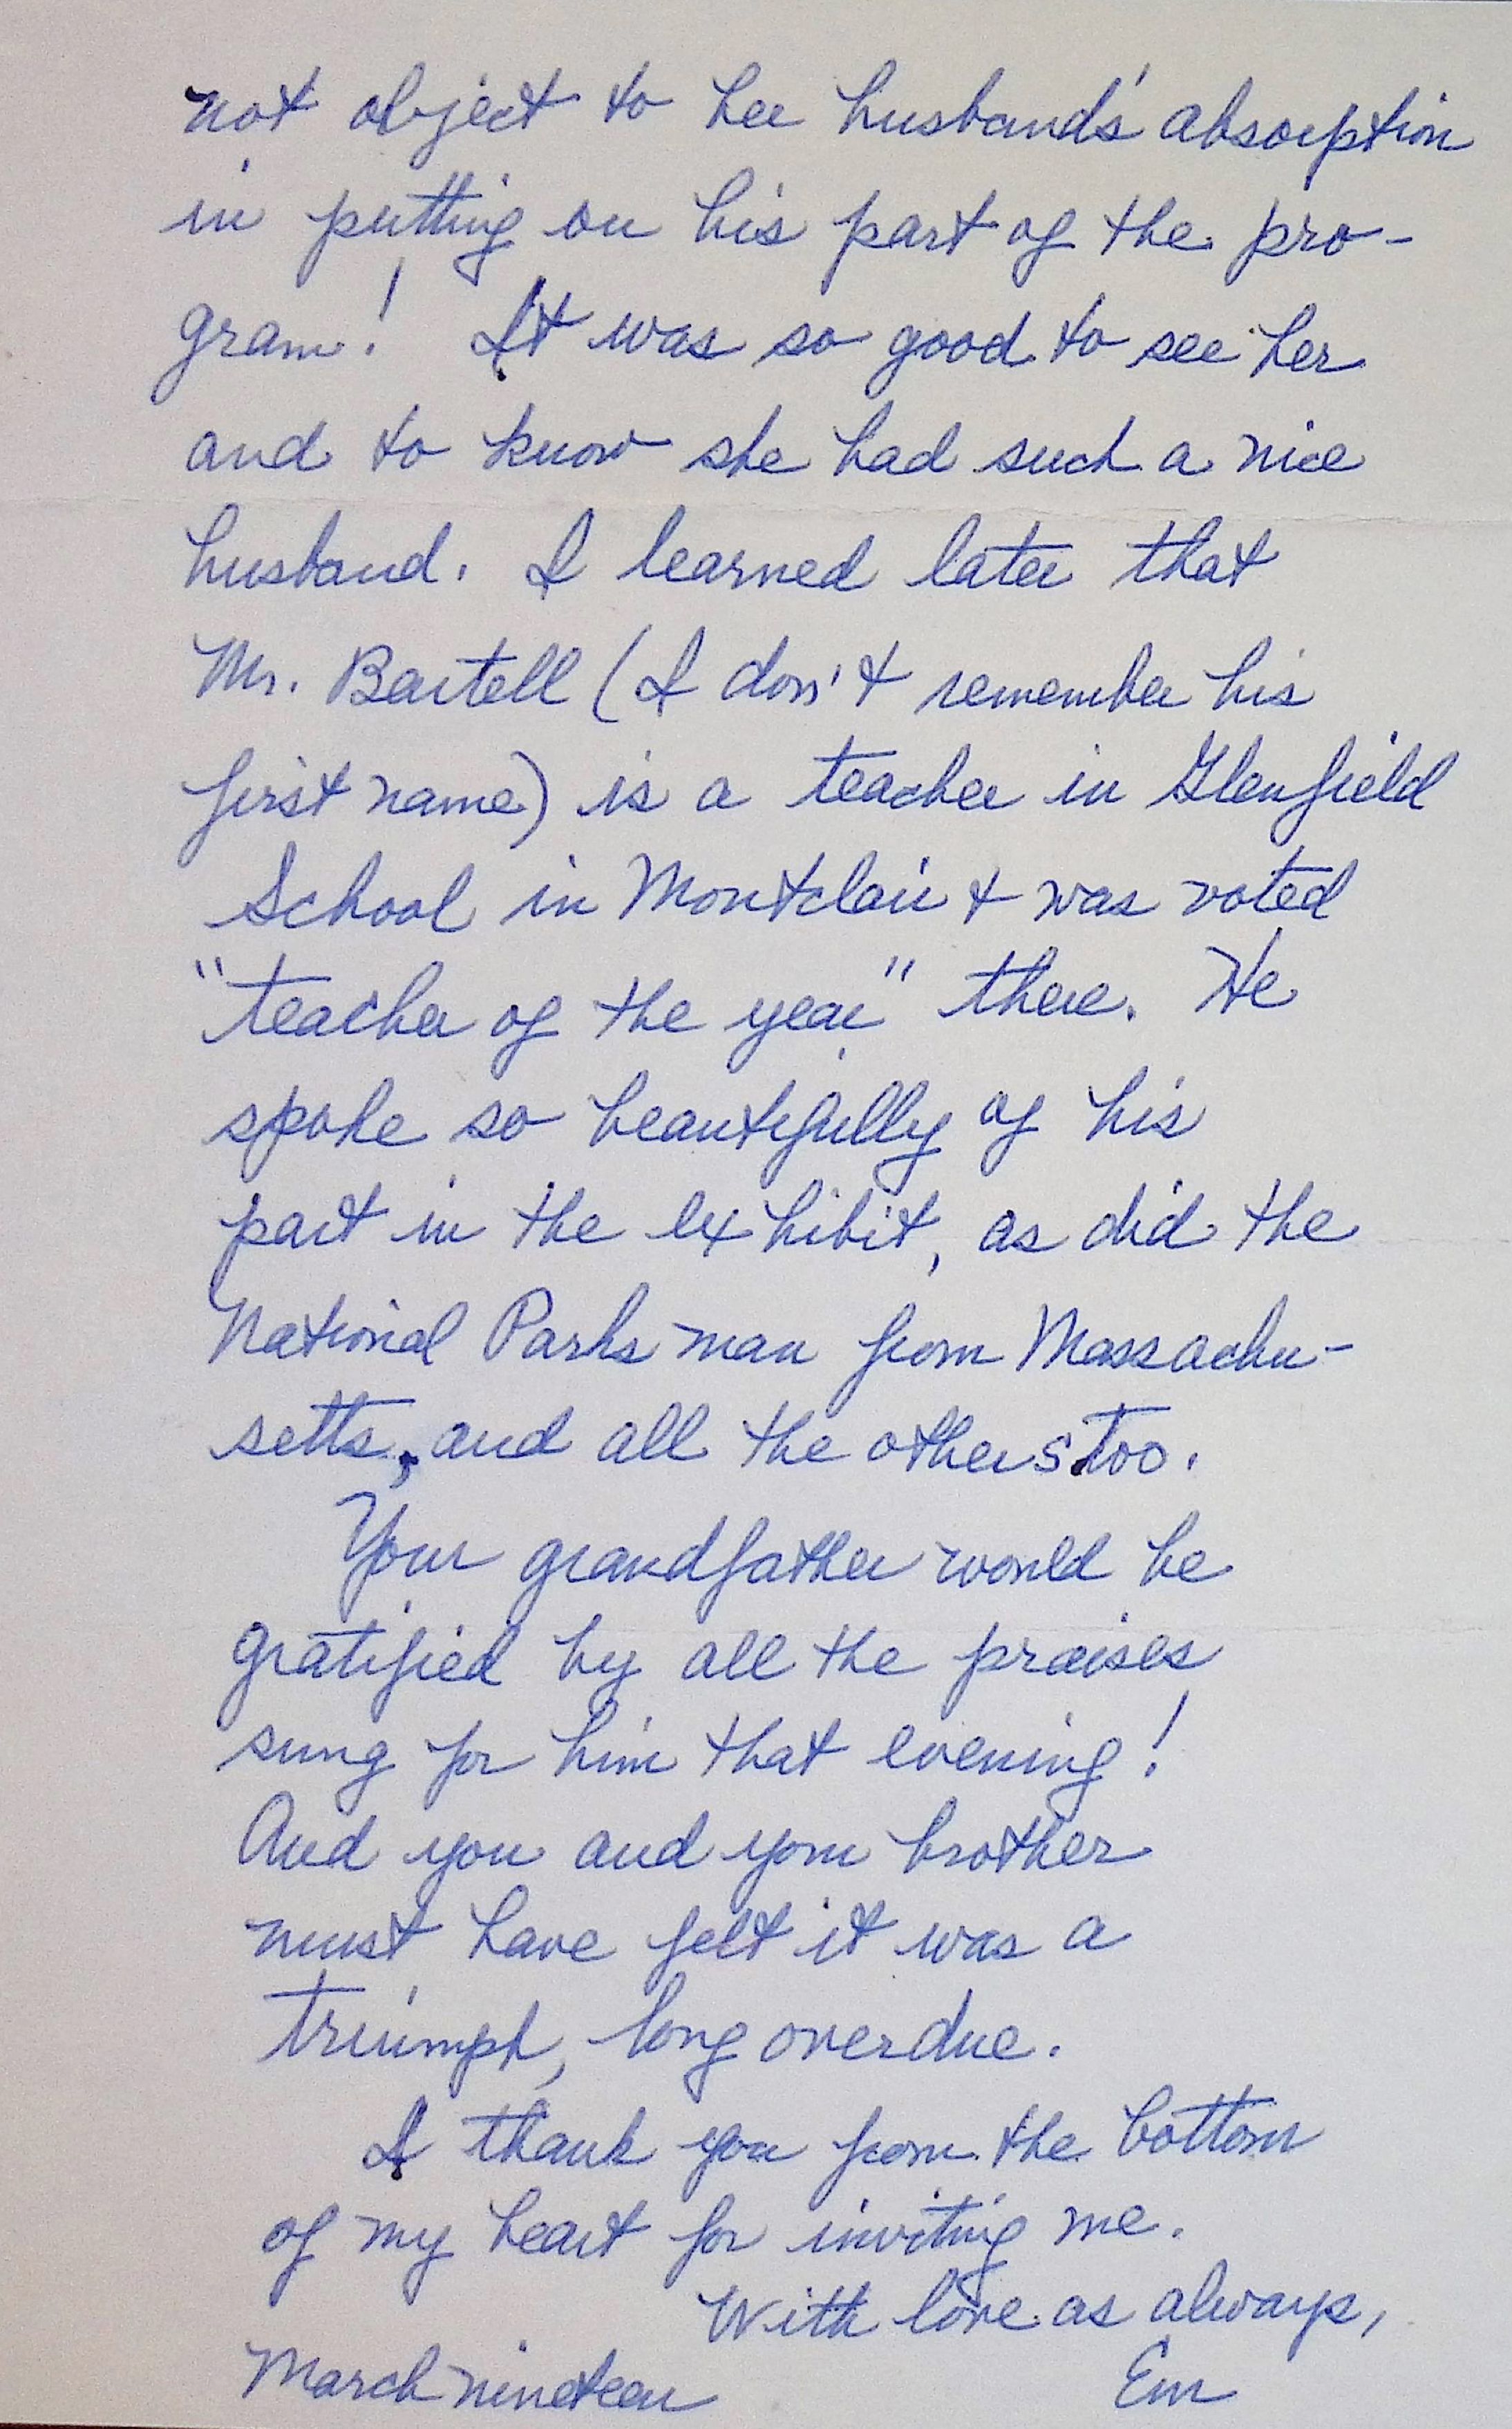 not object to her husband's absorption
in putting on his part of the pro-
gram! It was so good to see her
and to know she had such a nice
husband. I learned later that
Mr. Bartell (I don't remember his
first name) is a teacher in Glenfield
School in Montclair & was voted
"teacher of the year" there. He
spoke so beautifully of his
part in the exhibit, as did the
National Parks man from Massachu-
setts, and all the others too.
Your grandfather would be
gratified by all the praises
sung for him that evening!
And you and your brother
must have felt it was a
triumph, long overdue.
I thank you from the bottom
of my heart for inviting me.
With love as always,
March nineteen Em